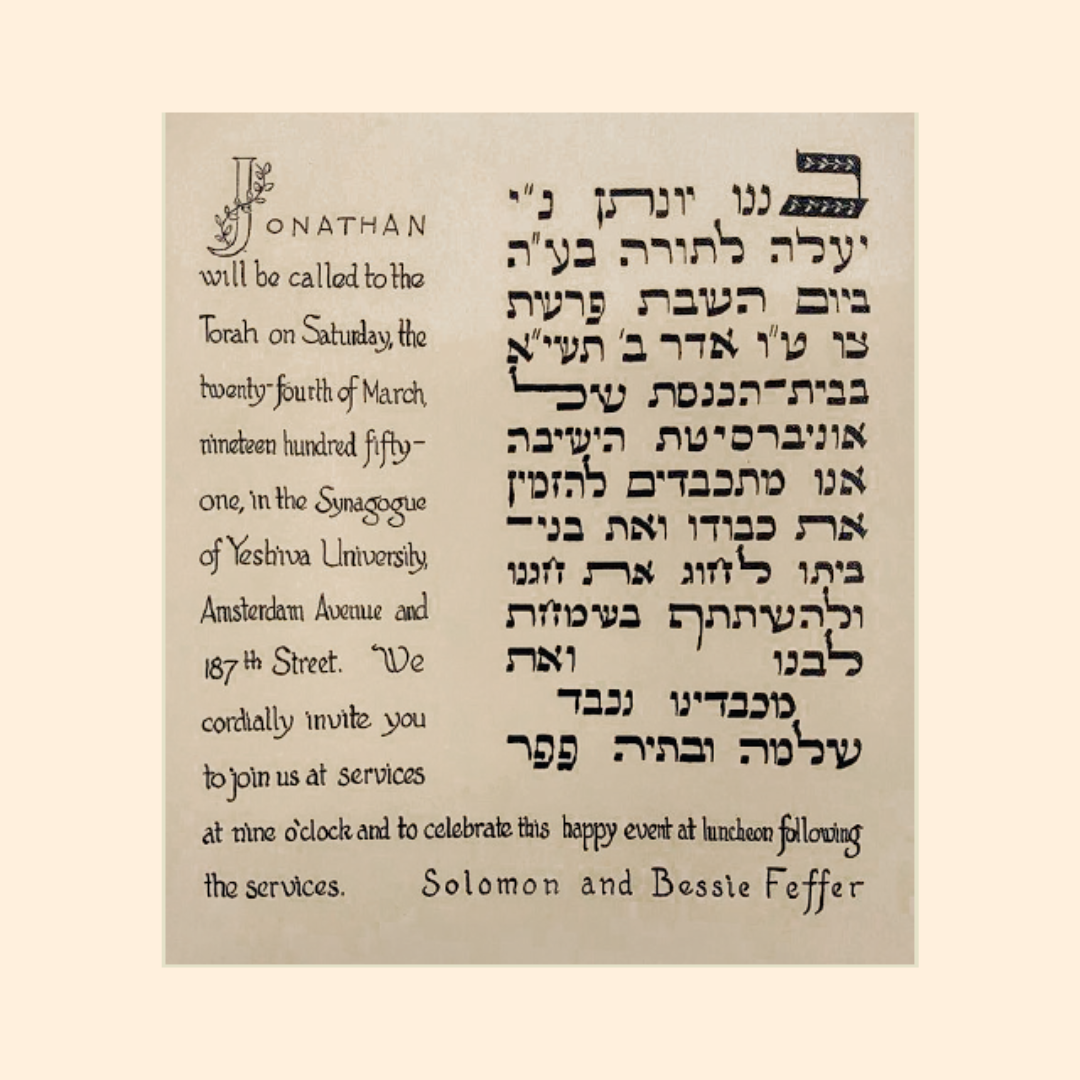 JONATHAN
will be called to the
Torah on Saturday, the
twenty-fourth of March,
nineteen hundred fifty-
one, in the Synagogue
of Yeshiva University,
Amsterdam Avenue and
187th Street. We
cordially invite you
to join us at services
at nine o'clock and to celebrate this happy event at luncheon following
the services. Solomon and Bessie Feffer
בננו יונתן נ״י
יעלה לתורה בע״ה
ביום השבת פרשת
צו ט״ו אדר ב׳ תשי״א
בבית־הכנסת של
אוניברסיטת הישיבה
אנו מתכבדים להזמין
את כבודו ואת בני־
ביתו לחוג את חגנו
ולהשתתף בשמחת
לבנו ואת
מכבדינו נכבד
שלמה ובתיה פפר